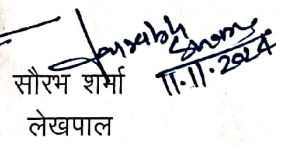 Saurabh Sharma
11.11.2024
सौरभ शर्मा
लेखपाल